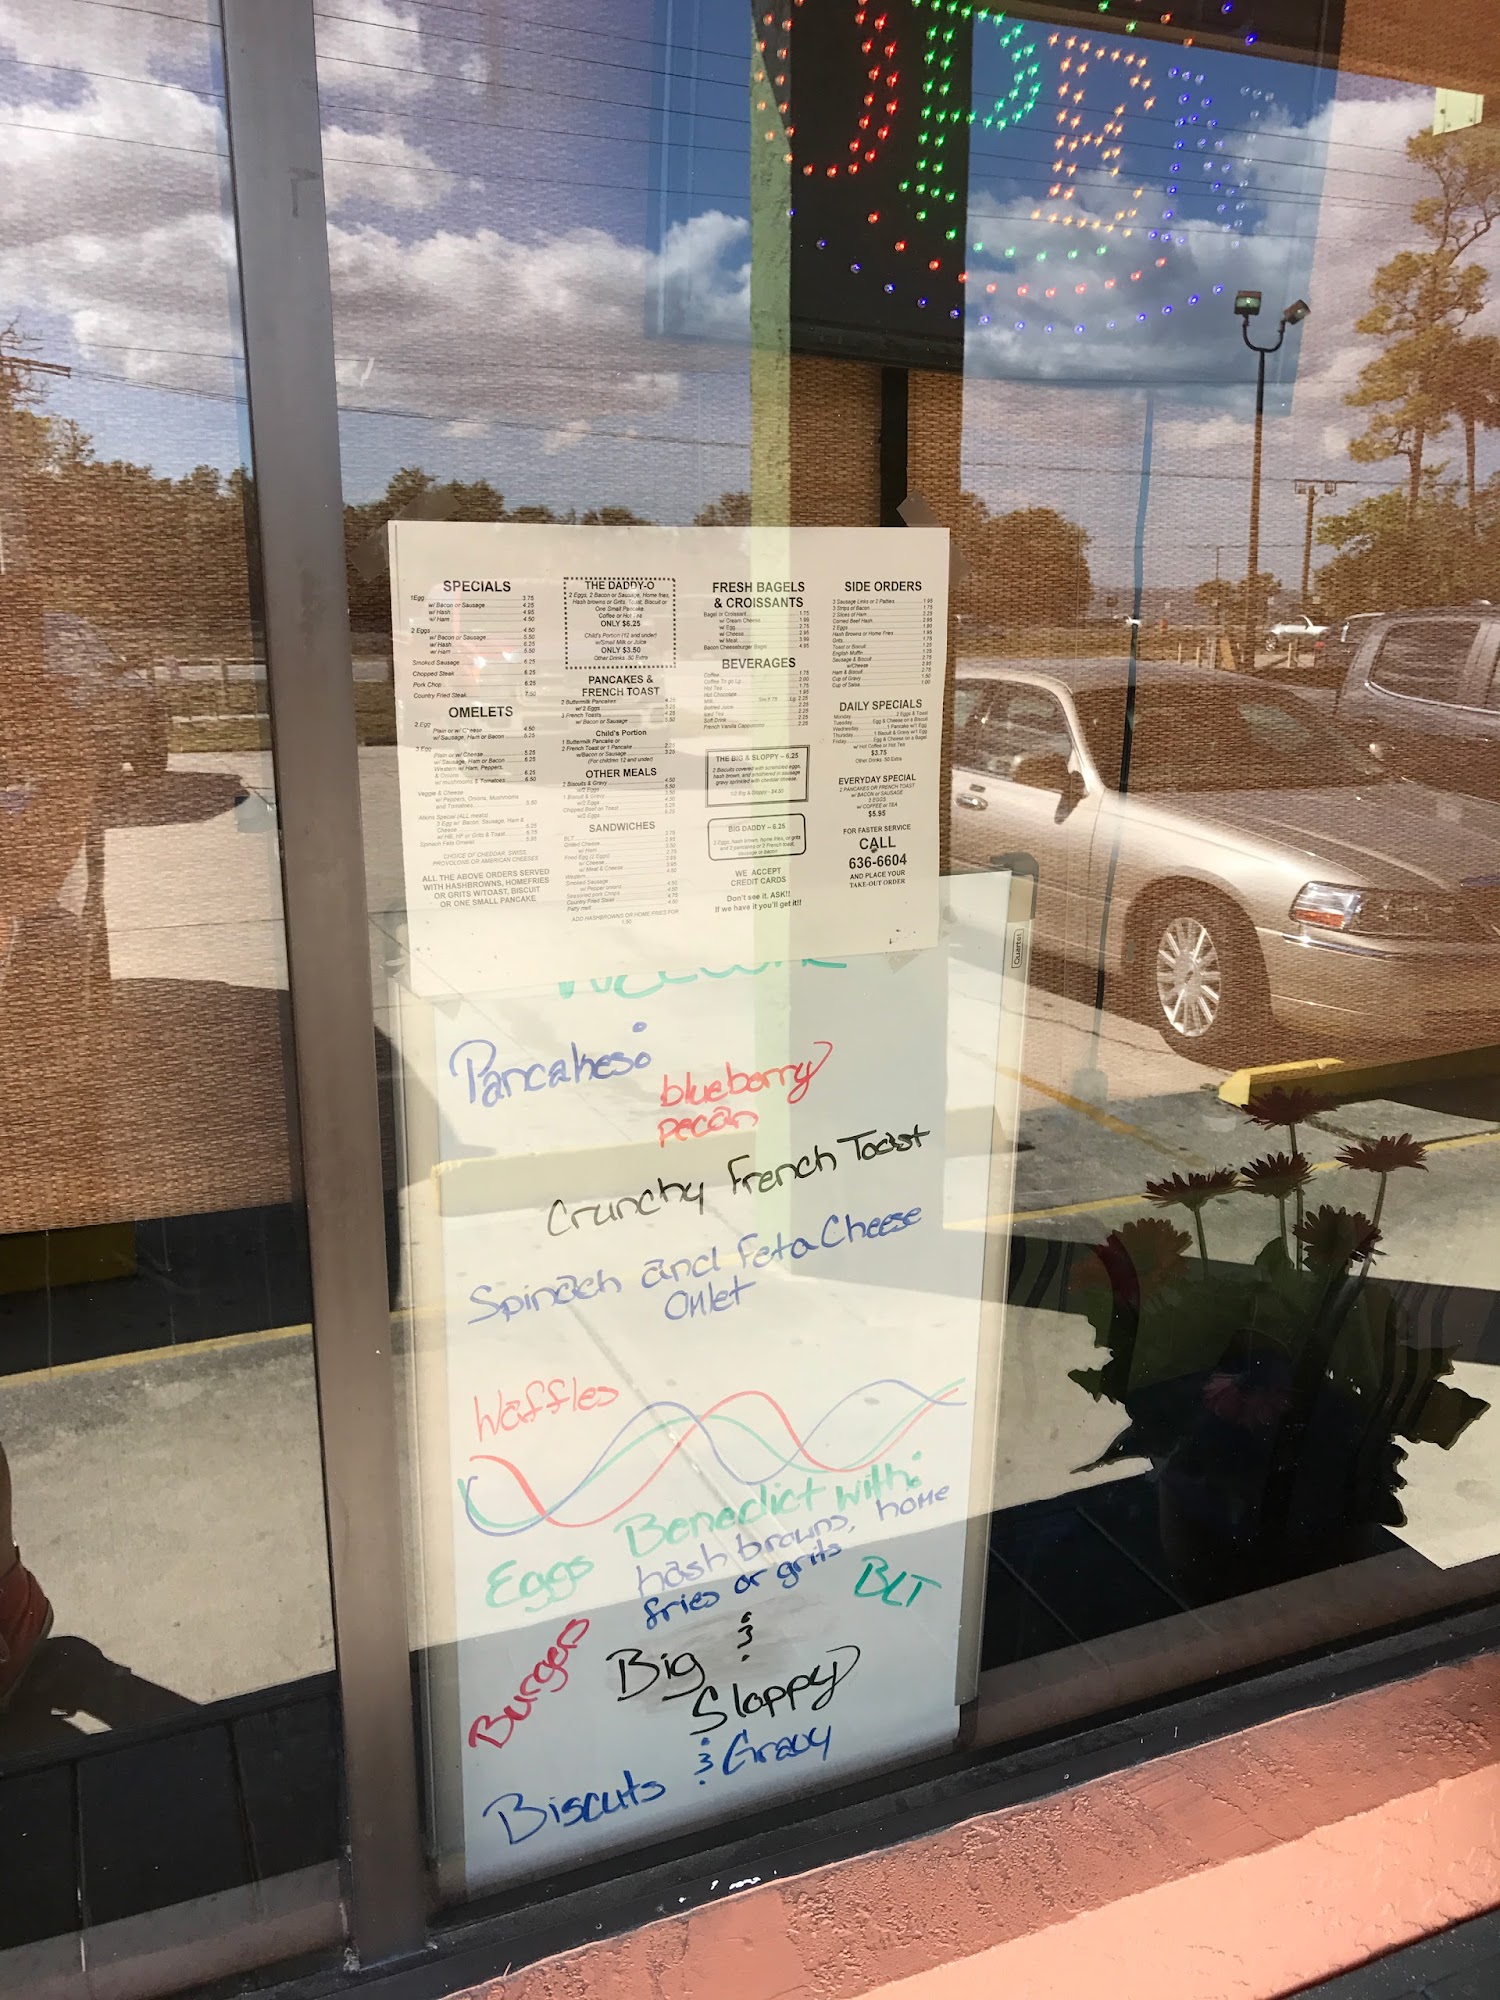 OPEN
SPECIALS
1Egg 3.75
w/ Bacon or Sausage 4.25
w/ Hash 4.95
w/ Ham 4.50
2 Eggs 4.50
w/ Bacon or Sausage 5.50
w/ Hash 6.25
w/ Ham 5.50
Smoked Sausage 6.25
Chopped Steak 6.25
Pork Chop 6.25
Country Fried Steak
OMELETS
2 Egg
Plain or w/ Cheese 4.50
w/ Sausage, Ham or Bacon 5.25
3 Egg
Plain or w/ Cheese 5.25
w/ Sausage, Ham or Bacon 6.25
Western w/ Ham, Peppers,
& Onions 6.25
w/ mushrooms & Tomatoes 6.50
Veggie & Cheese
w/ Peppers, Onions, Mushrooms
and Tomatoes 5.50
3 Egg w/ Bacon, Sausage, Ham &
Cheese 6.25
w/ HB, HF or Grits & Toast 6.75
Spinach Feta Omelet 5.95
CHOICE OF CHEDDAR, SWISS,
PROVOLONE OR AMERICAN CHEESES
ALL THE ABOVE ORDERS SERVED
WITH HASHBROWNS, HOMEFRIES
OR GRITS W/TOAST, BISCUIT
OR ONE SMALL PANCAKE
THE DADDY-O
2 Eggs, 2 Bacon or Sausage, Home fries,
Hash browns or Grits, Toast, Biscuit or
One Small Pancake
Coffee or Hot Tea
ONLY $6.25
Child's Portion (12 and under)
w/Small Milk or Juice
ONLY $3.50
Other Drinks .50 Extra
PANCAKES &
FRENCH TOAST
2 Buttermilk Pancakes 4.25
w/ 2 Eggs
3 French Toasts 4.25
w/ Bacon or Sausage 5.50
Child's Portion
1 Buttermilk Pancake or
2 French Toast or 1 Pancake 2.25
w/Bacon or Sausage 3.25
(For children 12 and under)
OTHER MEALS
2 Biscuits & Gravy 4.50
w/2 Eggs 5.50
1 Biscuit & Gravy 3.50
w/2 Eggs 4.50
Chipped Beef on Toast 5.25
w/2 Eggs 6.25
SANDWICHES
BLT 3.75
Grilled Cheese
w/ Ham
Fried Egg (2 Eggs)
w/ Cheese
w/ Meat & Cheese
Western
Smoked Sausage
w/ Pepper onions
Seasoned pork Chops
Country Fried Steak
Patty melt
ADD HASHBROWNS OR HOME FRIES FOR
1.50
FRESH BAGELS
& CROISSANTS
Bagel or Croissant 1.75
w/ Cream Cheese 1.99
w/ Egg 2.75
w/ Cheese 2.95
w/ Meat 3.99
Bacon Cheeseburger Bagel 4.95
BEVERAGES
Coffee 1.75
Coffee To go Lg 2.00
Hot Tea 1.75
Hot Chocolate 1.95
Milk Sm 1.75 Lg 2.25
Bottled Juice 2.25
Iced Tea 2.25
Soft Drink 2.25
French Vanilla Cappuccino 2.25
THE BIG & SLOPPY – 6.25
2 Biscuits covered with scrambled eggs,
hash brown, and smothered in sausage
gravy sprinkled with cheddar cheese.
1/2 Big & Sloppy - $4.50
BIG DADDY – 6.25
2 Eggs, hash brown, home fries, or grits
and 2 pancakes or 2 French toast,
sausage or bacon
WE ACCEPT
CREDIT CARDS
Don't see it. ASK!!
If we have it you'll get it!!
SIDE ORDERS
2 Sausage Links or 2 Patties 1.95
3 Strips of Bacon 1.75
2 Slices of Ham 2.25
Corned Beef Hash 2.95
2 Eggs 1.80
Hash Browns or Home Fries 1.95
Grits 1.75
Toast or Biscuit 1.25
English Muffin 1.25
Sausage & Biscuit 2.75
w/Cheese 2.95
Ham & Biscuit 2.75
Cup of Gravy 1.50
Cup of Salsa
DAILY SPECIALS
Monday 2 Eggs & Toast
Tuesday Egg & Cheese on a Biscuit
Wednesday 1 Pancake w/1 Egg
Thursday 1 Biscuit & Gravy w/1 Egg
Friday Egg & Cheese on a Bagel
w/ Hot Coffee or Hot Tea
$3.75
Other Drinks .50 Extra
EVERYDAY SPECIAL
2 PANCAKES OR FRENCH TOAST
w/ BACON or SAUSAGE
2 EGGS
w/ COFFEE or TEA
$5.95
FOR FASTER SERVICE
CALL
636-6604
AND PLACE YOUR
TAKE-OUT ORDER
Quartet
Pancakes:
blueberry
pecan
Crunchy French Toast
Spinach and Feta Cheese
Omlet
Waffles
Eggs Benedict with:
hash browns, home
fries or grits
BLT
Burgers
Big &
Sloppy
Biscuts & Gravy